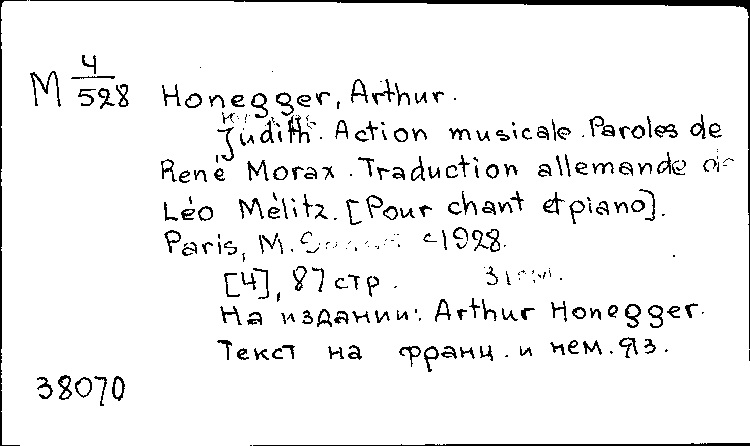 М 4/528 Honegger, Arthur.
Judith. Action musicale. Paroles de
René Morax. Traduction allemande de
Léo Mélitz. [Pour chant et piano].
Paris, M. c1928.
[4], 87 стр. 31
На издании: Arthur Honegger.
Текст на франц. и нем. яз.
38070